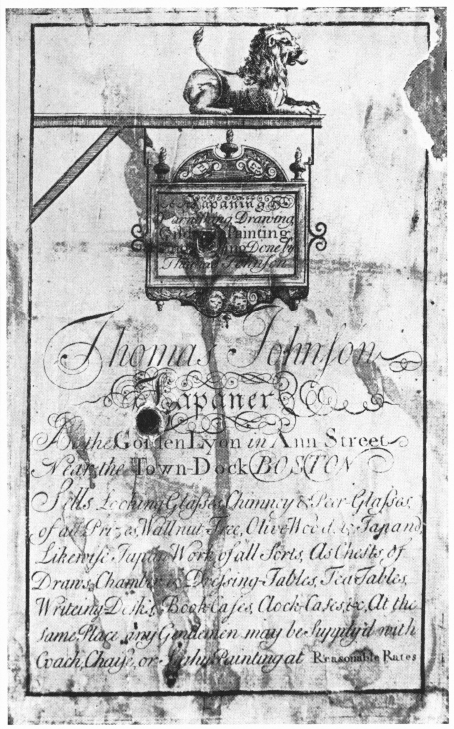 Japaning
Varnishing Drawing
Gilding Painting
Done by
Thomas Johnson
Thomas Johnſon
Japaner
At the Golden Lyon in Ann Street
Near the Town-Dock BOSTON
Sells Looking Glaſses, Chimney & Peer-Glaſses,
of all Prizes, Wallnut-Tree, Olive Wood, & Japand,
Likewiſe Japan Work of all Sorts, As Cheſts of
Draws, Chamber & Dreſsing-Tables, Tea-Tables,
Writeing Desks, Book-Caſes, Clock-Caſes, &c, At the
ſame Place any Gentlemen may be Supply'd with
Coach, Chaiſe, or Painting at Reasonable Rates